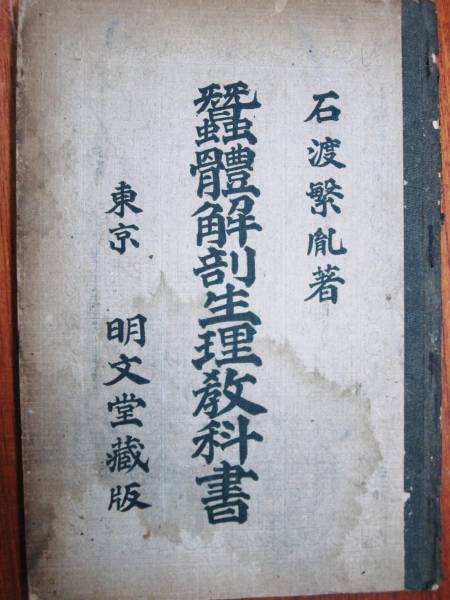 石渡繁胤著
蠶體解剖生理教科書
東京 明文堂藏版